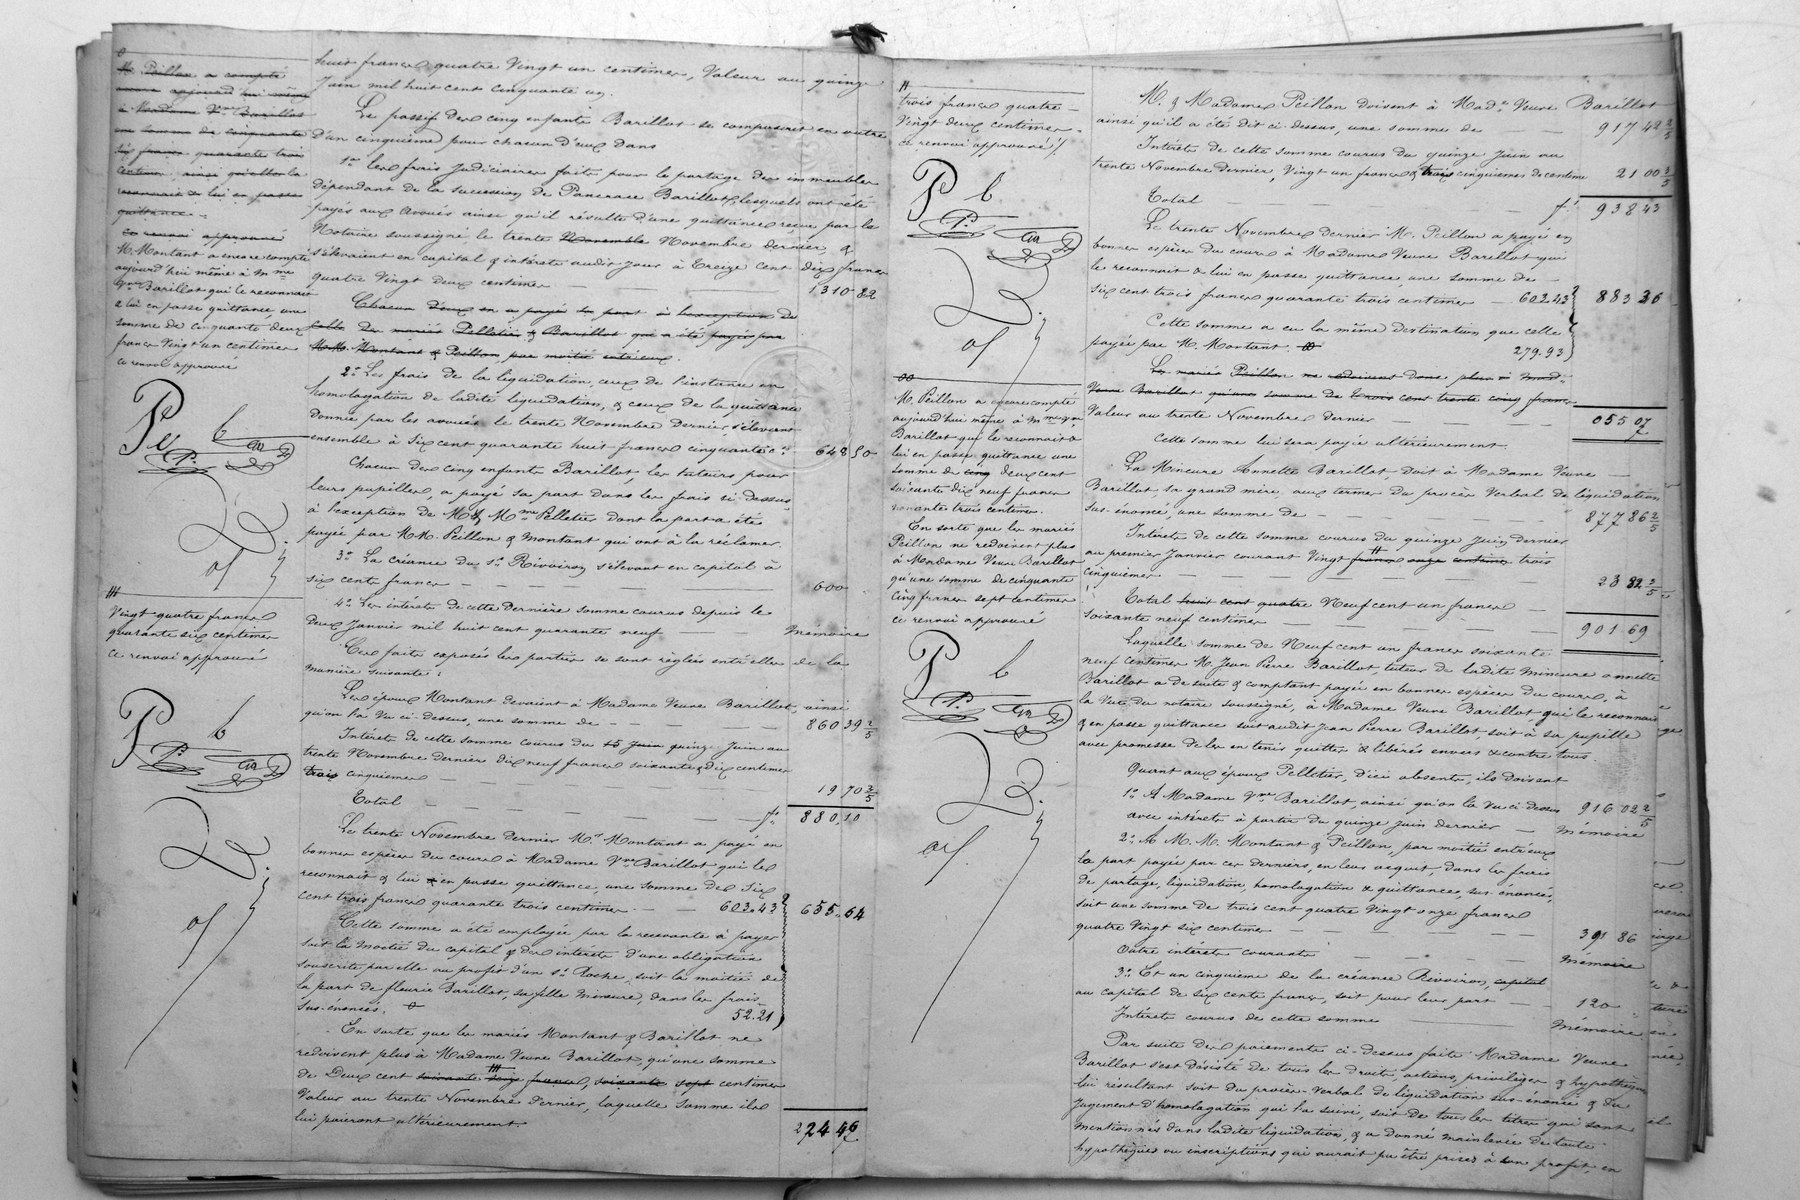 huit francs quatre Vingt un centimes, Valeur au quinze
Juin mil huit cent cinquante un.
Le passif des cinq enfants Barillot se composerait en outre
d'un cinquième pour chacun d'eux dans
1° les frais Judiciaires faits pour le partage des immeubles
dépendant de la succession de Pancrace Barillot, lesquels ont été
payés aux avoués ainsi qu'il résulte d'une quittance reçue par le
Notaire soussigné le trente Novembre Novembre dernier &
s'élevaient en capital & intérêts audit jour à Treize cent dix francs
quatre Vingt deux centimes 1310 82
Chacun d'eux en a payé sa part à l'exception de
celle des mariés Pelletier & Barillot qui a été payée par
M.M. Montant & Peillon, par moitié entr'eux.
2° Les frais de la liquidation, ceux de l'instance en
homologation de ladite liquidation, & ceux de la quittance
donnée par les avoués le trente Novembre dernier, s'élevaient
ensemble à Six cent quarante huit francs cinquante c.es 648 50
Chacun des cinq enfants Barillot, les tuteurs pour
leurs pupilles, a payé sa part dans les frais ci dessus
à l'exception de M. & Mme Pelletier dont la part a été
payée par M.M. Peillon & Montant qui ont à la réclamer.
3° La créance du sr Rivoiron s'élevant en capital à
six cents francs 600
4° Les intérêts de cette dernière somme courus depuis le
deux Janvier mil huit cent quarante neuf Mémoire
Ces faits exposés les parties se sont réglées entr'elles de la
manière suivante :
Les époux Montant devaient à Madame Veuve Barillot, ainsi
qu'on l'a vu ci-dessus, une somme de 860 39 2/5
Intérêts de cette somme courus du 15 Juin quinze Juin au
trente Novembre dernier dix neuf francs soixante & dix centimes
trois cinquièmes 19 70 3/5
Total fs 880,10
Le trente Novembre dernier Mr Montant a payé en
bonnes espèces du cours à Madame Vve Barillot qui le
reconnait & lui en passe quittance, une somme de Six
cent trois francs quarante trois centimes 603.43 655.64
Cette somme a été employée par la recevante à payer
soit la moitié du capital & des intérêts d'une obligation
souscrite par elle au profit d'un sr Roche, soit la moitié de
la part de fleurie Barillot, sa fille mineure, dans les frais
sus-énoncés. 52.21
En sorte que les mariés Montant & Barillot ne
redoivent plus à Madame Veuve Barillot, qu'une somme
de Deux cent soixante seize francs, soixante sept centimes
Valeur au trente Novembre dernier, laquelle somme ils
lui paieront ultérieurement 224 46
M. Peillon a compté
encore aujourd'hui même
à Madame Vve Barillot
une somme de cinquante
six francs quarante trois
centimes, ainsi qu'elle le
reconnait & lui en passe
quittance.
Ce renvoi approuvé
M. Montant a encore compté
aujourd'hui même à Mme
Vve Barillot qui le reconnait
& lui en passe quittance, une
somme de cinquante deux
francs Vingt un centimes
ce renvoi approuvé
Vingt quatre francs
quarante six centimes
Ce renvoi approuvé
trois francs quatre
Vingt deux centimes
ce renvoi approuvé
M. Peillon a encore compté
aujourd'hui même à Mme Vve
Barillot qui le reconnait &
lui en passe quittance une
somme de cinq deux cent
soixante dix neuf francs
nonante trois centimes.
En sorte que les mariés
Peillon ne redoivent plus
à Madame Veuve Barillot
qu'une somme de cinquante
cinq francs sept centimes
ce renvoi approuvé
M. & Madame Peillon doivent à Made Veuve Barillot
ainsi qu'il a été dit ci-dessus, une somme de 917 42 2/5
Intérêts de cette somme courus du quinze Juin au
trente Novembre dernier, Vingt un francs & trois cinquièmes de centime 21 00 3/5
Total fs 938 43
Le trente Novembre dernier M. Peillon a payé en
bonnes espèces du cours à Madame Veuve Barillot qui
le reconnait & lui en passe quittance, une somme de
six cent trois francs quarante trois centimes 603.43 883 36
Cette somme a eu la même destination que celle
payée par M. Montant. 279.93
Les mariés Peillon ne redoivent donc plus à Made
Veuve Barillot qu'une somme de trois cent trente cinq francs
Valeur au trente Novembre dernier 055 07
Cette somme lui sera payée ultérieurement.
La Mineure Annette Barillot, doit à Madame Veuve
Barillot, sa grand mère, aux termes du procès Verbal de liquidation
sus-énoncé, une somme de 877 86 2/5
Intérêts de cette somme courus du quinze Juin dernier
au premier Janvier courant Vingt francs onze centimes trois
cinquièmes 23 82 3/5
Total huit cent quatre Neuf cent un francs
soixante neuf centimes 901 69
Laquelle somme de Neuf cent un francs soixante
neuf centimes M. Jean Pierre Barillot, tuteur de ladite Mineure annette
Barillot a de suite & comptant payée en bonnes espèces du cours, à
la Vue du notaire soussigné, à Madame Veuve Barillot qui le reconnait
& en passe quittance soit audit Jean Pierre Barillot soit à sa pupille
avec promesse de les en tenir quittes & libérés envers & contre tous.
Quant aux époux Pelletier, d'ici absents, ils doivent
1° A Madame Vve Barillot, ainsi qu'on l'a vu ci-dessus 916 02 2/5
avec intérêts à partir du quinze Juin dernier Mémoire
2° A M.M. Montant & Peillon, par moitié entr'eux
la part payée par ces derniers, en leur acquit, dans les frais
de partage, liquidation, homologation & quittances, sus-énoncés,
soit une somme de trois cent quatre Vingt onze francs
quatre Vingt six centimes 391 86
Outre intérêts courants Mémoire
3° Et un cinquième de la créance Rivoiron, capital
au capital de six cents francs, soit pour leur part 120
Intérêts courus de cette somme Mémoire
Par suite des paiements ci-dessus faits Madame Veuve
Barillot s'est désisté de tous les droits, actions, privilèges & hypothèques
lui résultant soit du procès-verbal de liquidation sus-énoncé & du
Jugement d'homologation qui l'a suivi, soit de tous les titres qui sont
mentionnés dans ladite liquidation, & a donné mainlevée de toute
hypothèques ou inscriptions qui aurait pu être prises à son profit, en